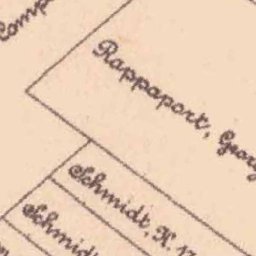 Comp
Rappaport, Georg
Schmidt, K. 17
Schmidt